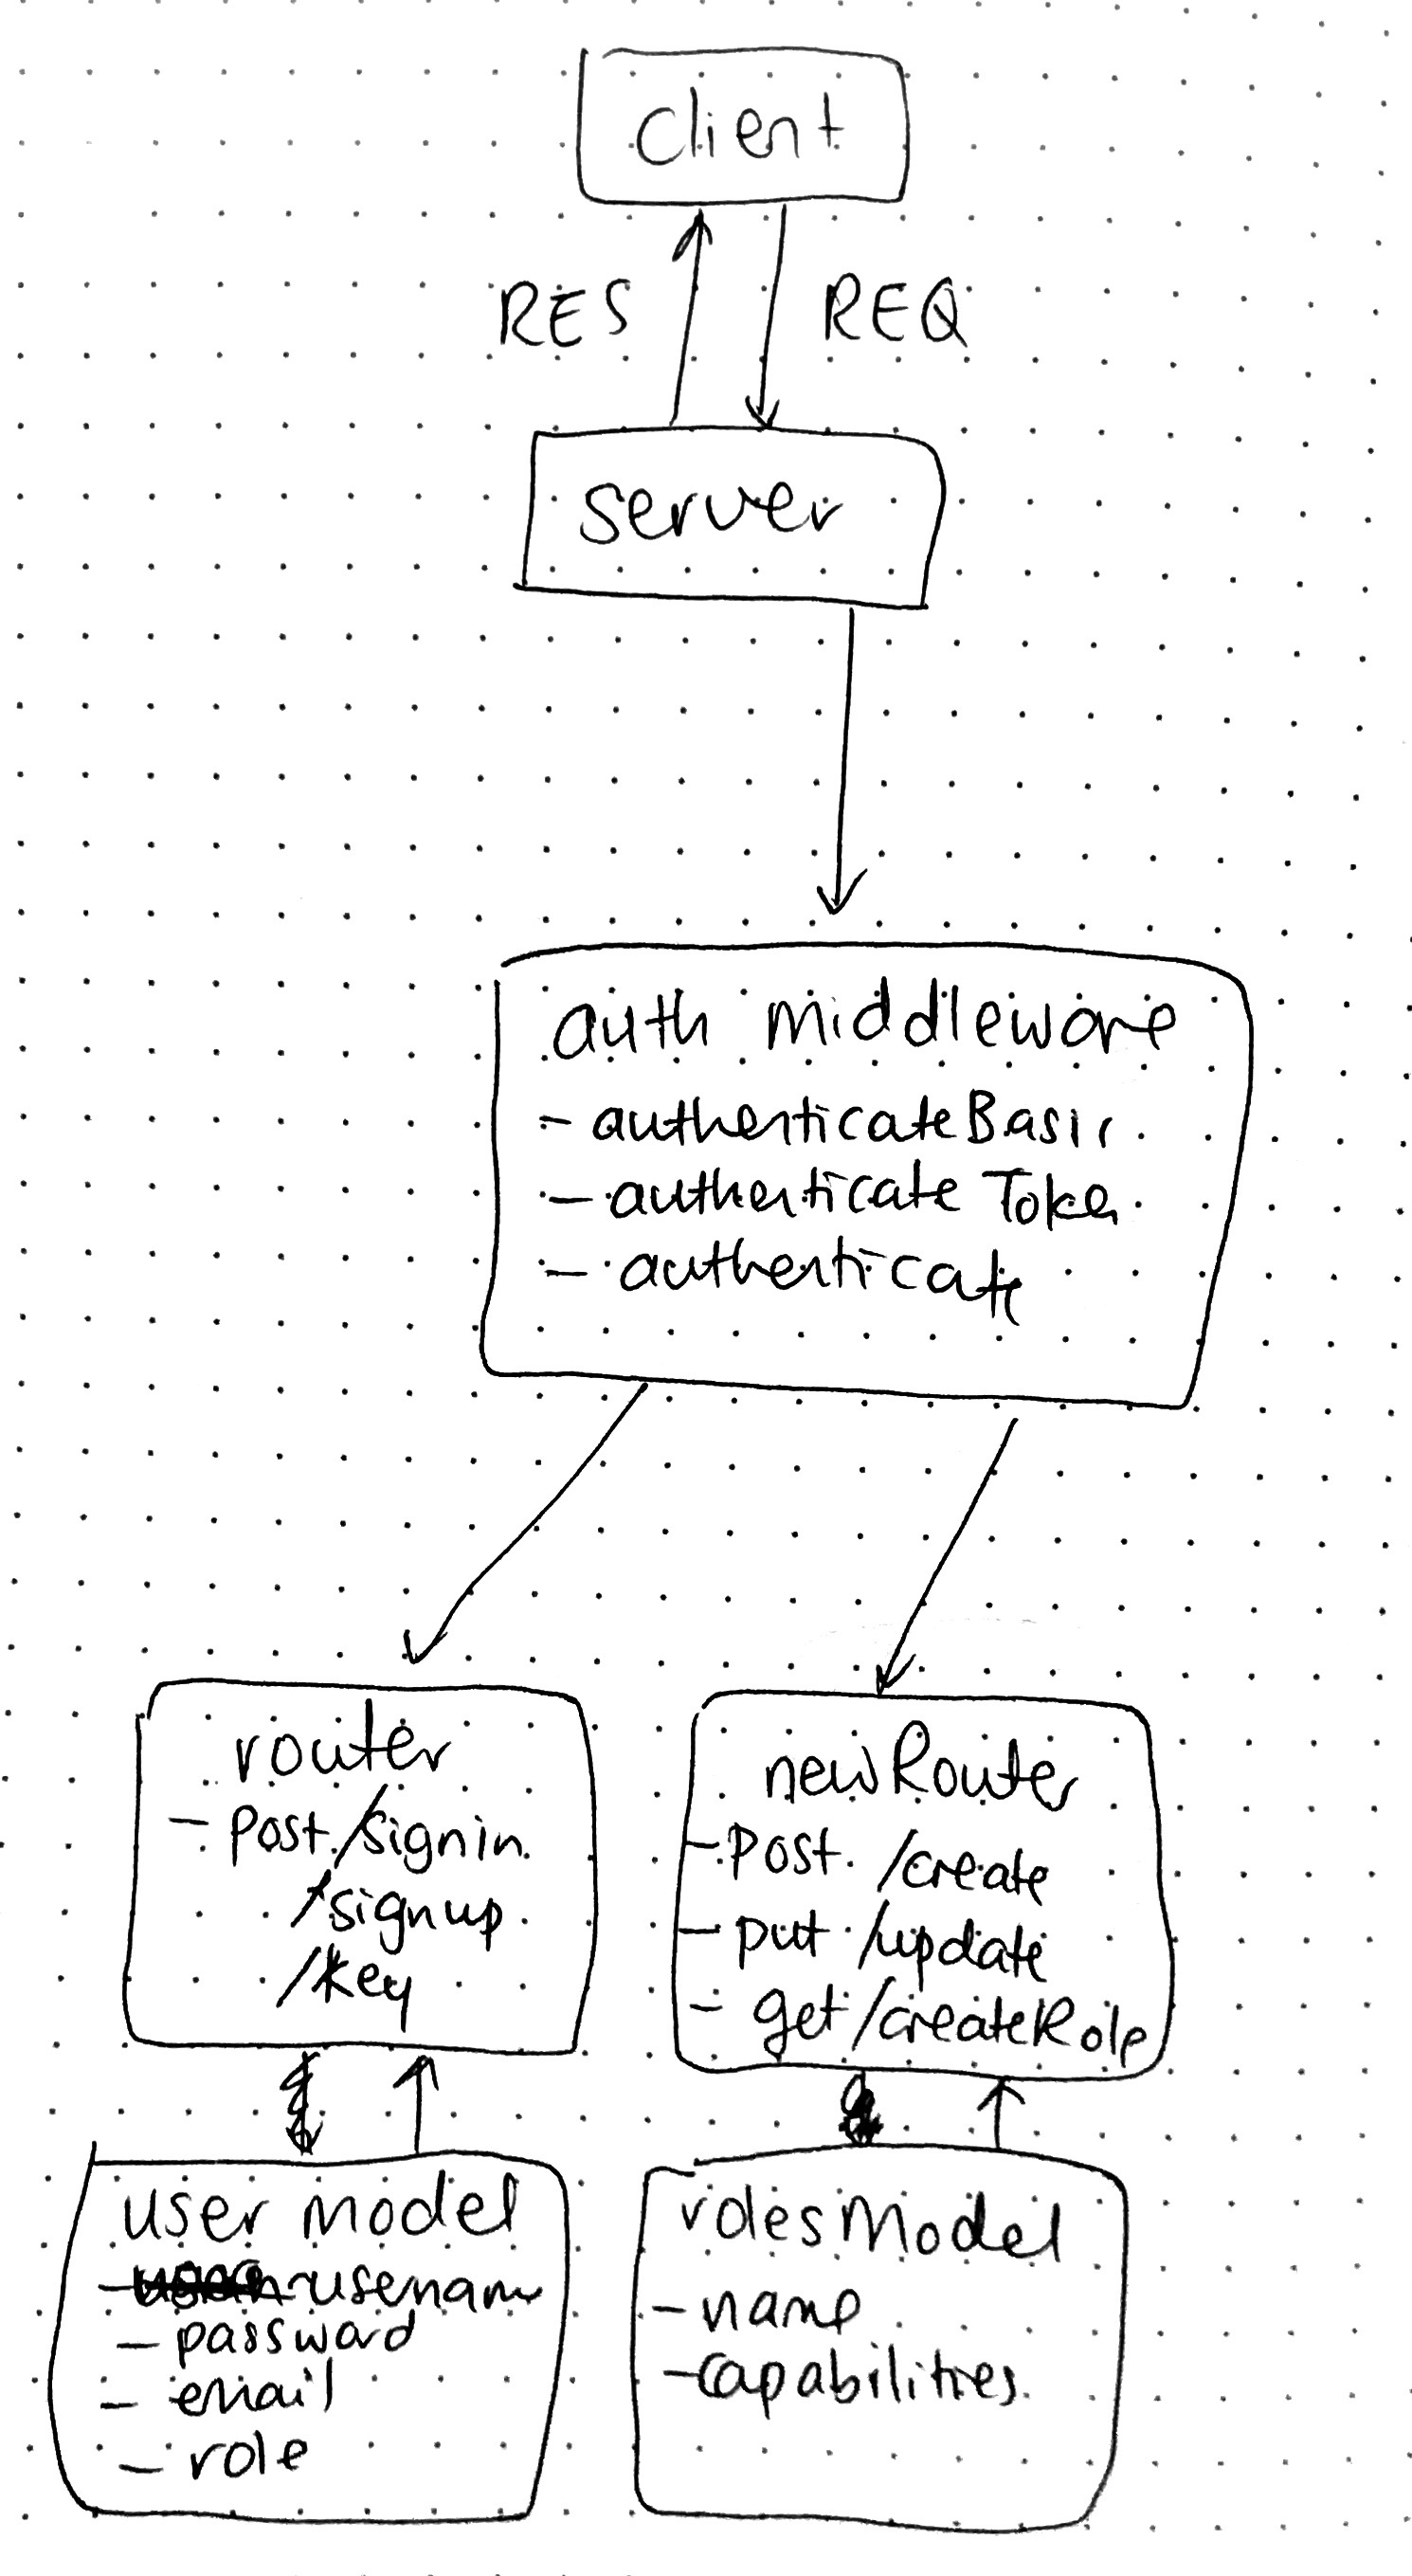 client
RES REQ
server
auth middleware
- authenticateBasic
- authenticate Token
- authenticate
router
- post /signin
/signup
/key
newRouter
- post /create
- put /update
- get /createRole
user model
- username
- password
- email
- role
rolesModel
- name
- capabilities